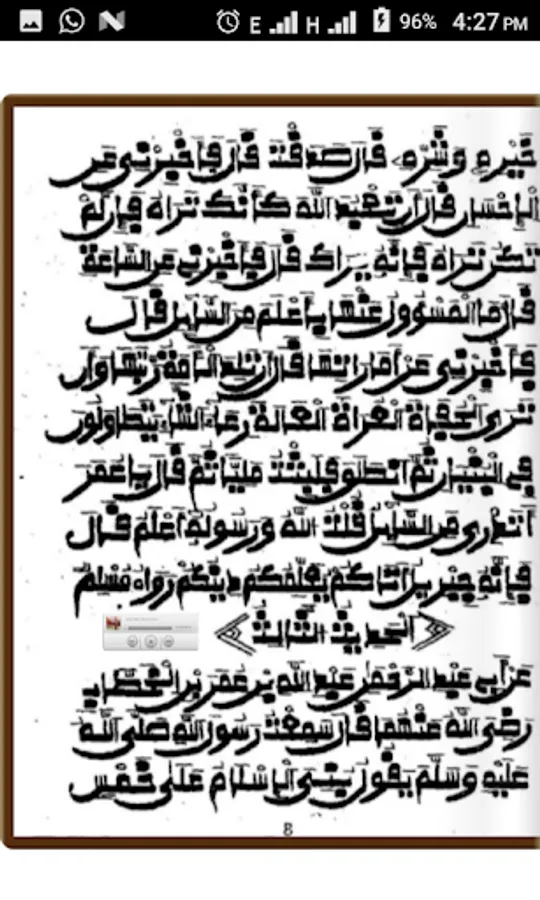 E H 96% 4:27 PM
خَيْرِهِ وَشَرِّهِ قَالَ صَدَقْتَ قَالَ فَأَخْبِرْنِي عَنِ
الْإِحْسَانِ قَالَ أَن تَعْبُدَ اللَّهَ كَأَنَّكَ تَرَاهُ فَإِن لَّمْ
تَكُن تَرَاهُ فَإِنَّهُ يَرَاكَ قَالَ فَأَخْبِرْنِي عَنِ السَّاعَةِ
قَالَ مَا الْمَسْؤُولُ عَنْهَا بِأَعْلَمَ مِنَ السَّائِلِ قَالَ
فَأَخْبِرْنِي عَنْ أَمَارَاتِهَا قَالَ أَن تَلِدَ الْأَمَةُ رَبَّتَهَا وَأَن
تَرَى الْحُفَاةَ الْعُرَاةَ الْعَالَةَ رِعَاءَ الشَّاءِ يَتَطَاوَلُونَ
فِي الْبُنْيَانِ ثُمَّ انطَلَقَ فَلَبِثْتُ مَلِيًّا ثُمَّ قَالَ يَا عُمَرُ
أَتَدْرِي مَنِ السَّائِلُ قُلْتُ اللَّهُ وَرَسُولُهُ أَعْلَمُ قَالَ
فَإِنَّهُ جِبْرِيلُ أَتَاكُمْ يُعَلِّمُكُمْ دِينَكُمْ رَوَاهُ مُسْلِمٌ
الْحَدِيثُ الثَّالِثُ
عَنْ أَبِي عَبْدِ الرَّحْمَنِ عَبْدِ اللَّهِ بْنِ عُمَرَ بْنِ الْخَطَّابِ
رَضِيَ اللَّهُ عَنْهُمَا قَالَ سَمِعْتُ رَسُولَ اللَّهِ صَلَّى اللَّهُ
عَلَيْهِ وَسَلَّمَ يَقُولُ بُنِيَ الْإِسْلَامُ عَلَى خَمْسٍ
8